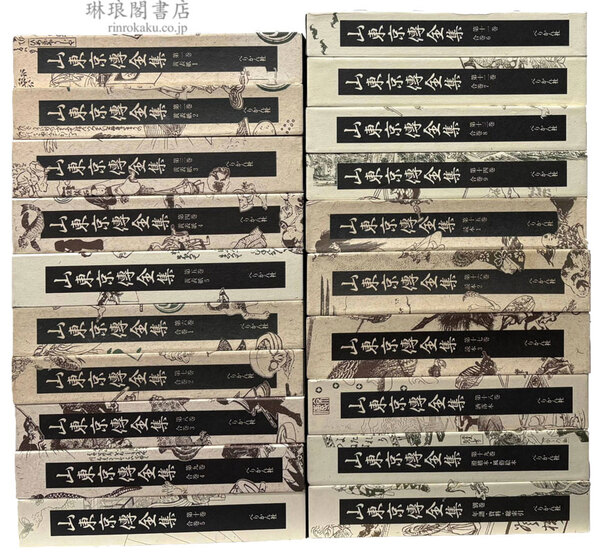 琳琅閣書店
rinrokaku.co.jp
山東京傳全集 第一巻 黄表紙1 ぺりかん社
山東京傳全集 第二巻 黄表紙2 ぺりかん社
山東京傳全集 第三巻 黄表紙3 ぺりかん社
山東京傳全集 第四巻 黄表紙4 ぺりかん社
山東京傳全集 第五巻 黄表紙5 ぺりかん社
山東京傳全集 第六巻 合巻1 ぺりかん社
山東京傳全集 第七巻 合巻2 ぺりかん社
山東京傳全集 第八巻 合巻3 ぺりかん社
山東京傳全集 第九巻 合巻4 ぺりかん社
山東京傳全集 第十巻 合巻5 ぺりかん社
山東京傳全集 第十一巻 合巻6 ぺりかん社
山東京傳全集 第十二巻 合巻7 ぺりかん社
山東京傳全集 第十三巻 合巻8 ぺりかん社
山東京傳全集 第十四巻 合巻9 ぺりかん社
山東京傳全集 第十五巻 読本1 ぺりかん社
山東京傳全集 第十六巻 読本2 ぺりかん社
山東京傳全集 第十七巻 読本3 ぺりかん社
山東京傳全集 第十八巻 洒落本 ぺりかん社
山東京傳全集 第十九巻 滑稽本・風俗絵本 ぺりかん社
山東京傳全集 別巻 年譜・資料・総索引 ぺりかん社